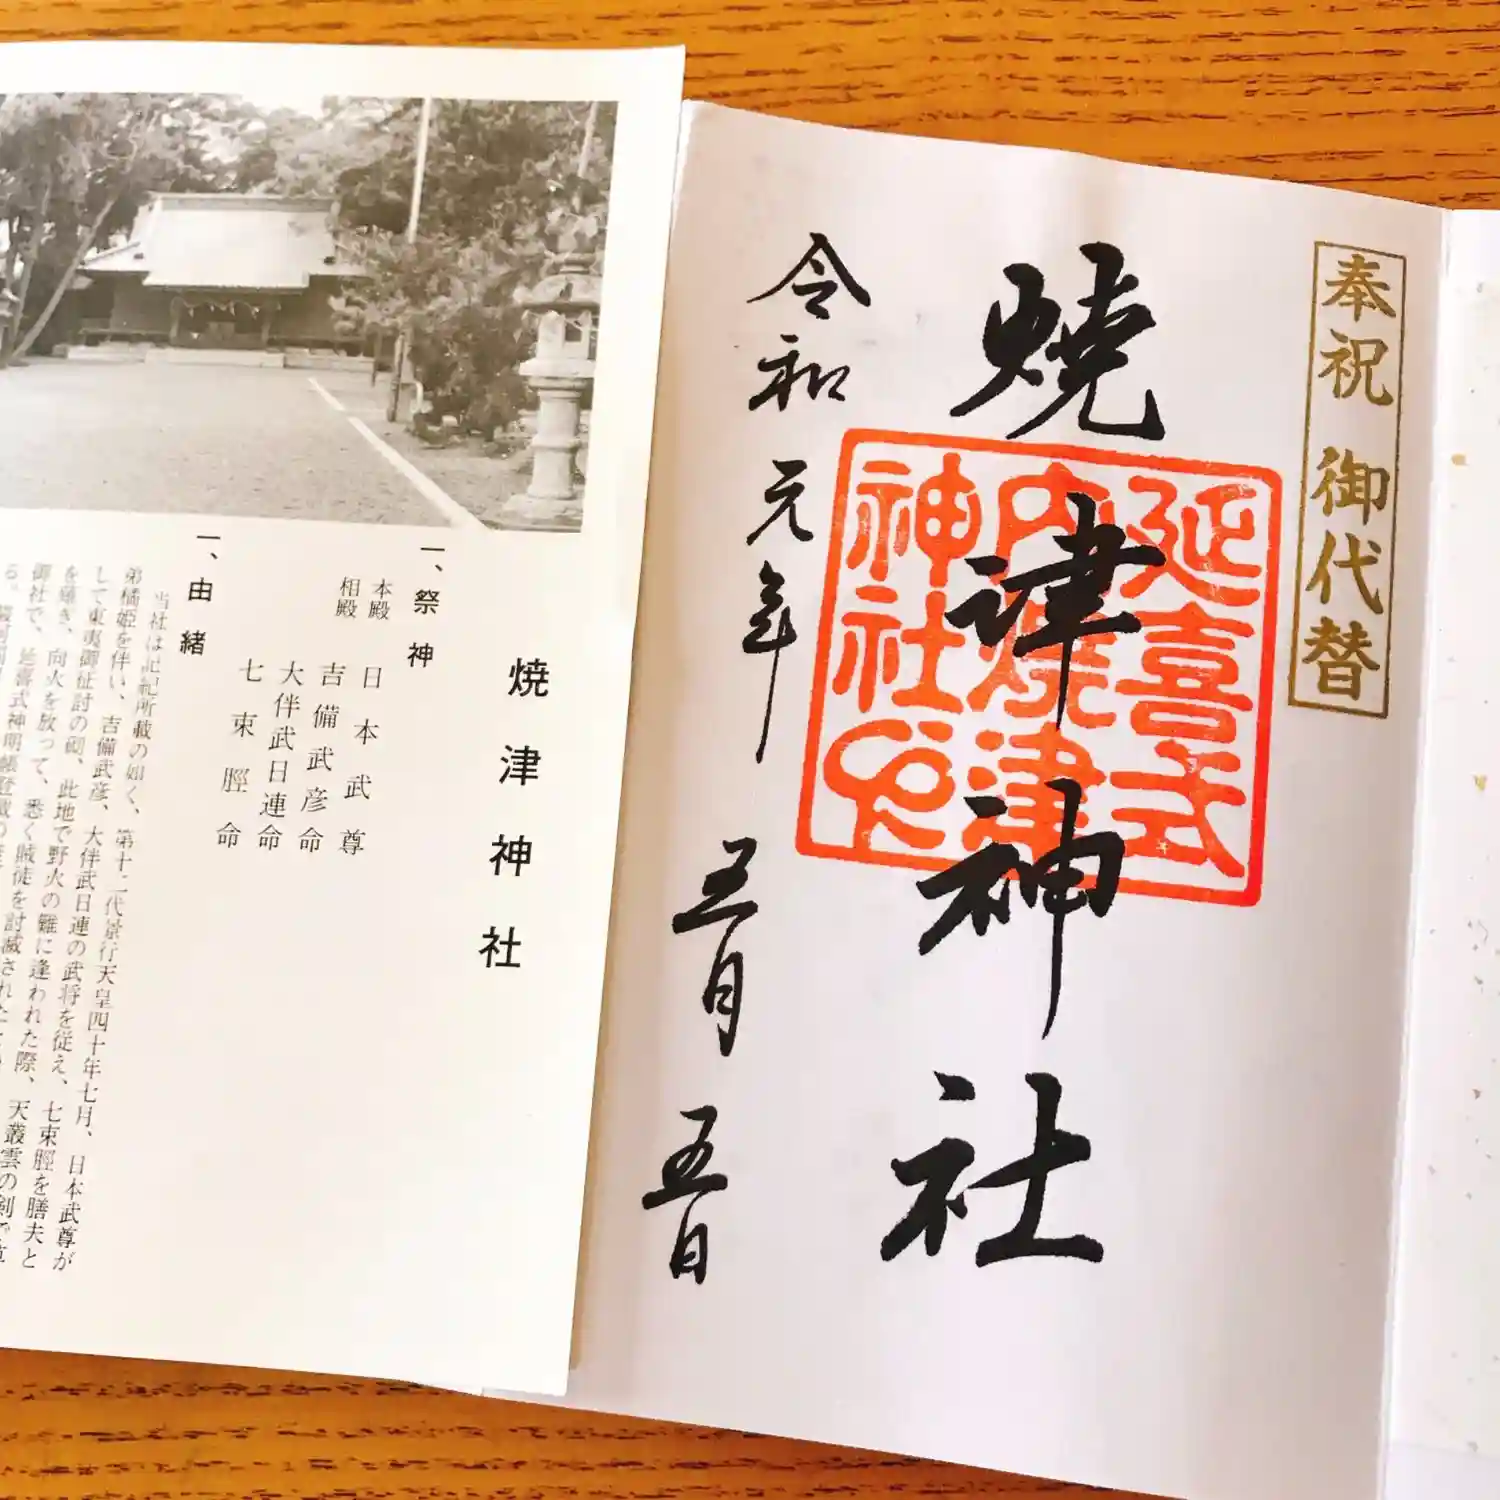 奉祝 御代替
焼津神社
延喜式
内焼津
神社
令和元年 五月 五日
焼津神社
一、祭神
本殿 日本武尊
相殿 吉備武彦命
大伴武日連命
七束脛命
一、由緒
当社は記紀所載の如く、第十二代景行天皇四十年七月、日本武尊が
弟橘姫を伴い、吉備武彦、大伴武日連の武将を従え、七束脛を膳夫と
して東夷御征討の砌、此地で野火の難に逢われた際、天叢雲の剣で草
を薙ぎ、向火を放って、悉く賊徒を討滅された
御社で、延喜式神明帳登載の
る。